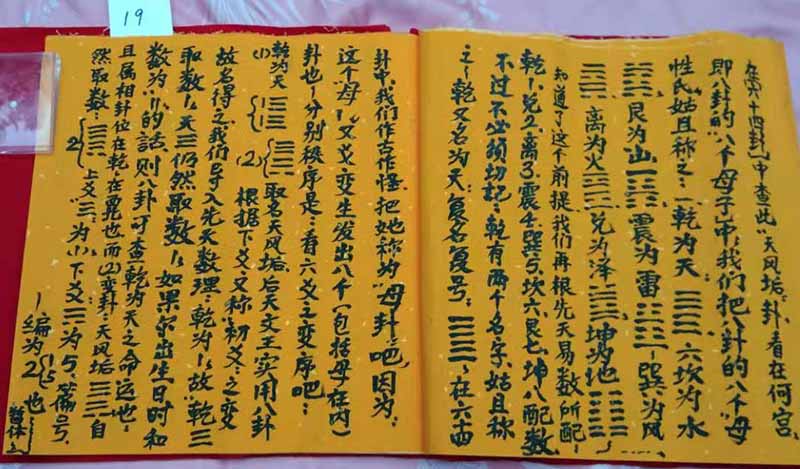 19
卦中看在何宫
即八卦的"八个母子中,我们把八卦的"八个"母"
性氏姑且称之:一乾为天: 六坎为水
艮为山 震为雷 巽为风
离为火 兑为泽 坤为地
知道了这个前提,我们再根先天易数所配
乾1兑2离3震4巽5坎六艮七坤八配数
不过不必须切记:乾有两个名字,姑且称
之一乾又名为天:复名复号:䷀,在六十四
卦中,我们作古作怪,把她称为"母卦"吧,因为,
这个母"又爻变生发出八个(包括母在内)
卦也一分别秩序是:看六爻之变序吧:
(1)乾为天 (2) 取名天风垢,后天文王实用八卦
根据下爻,又称初爻,之变
故名得之,我们导入先天数理,乾为1,故"乾三
取数1,天三仍然取数1,如果你出生日时和
数为"11的话,则八卦可查乾为天之命运也,
且属相卦位在乾,在也,而(2)变卦:天风垢䷫自
然取数:䷫ 2 上爻三,为(1),下爻三为5,篇号
一编为2 5也